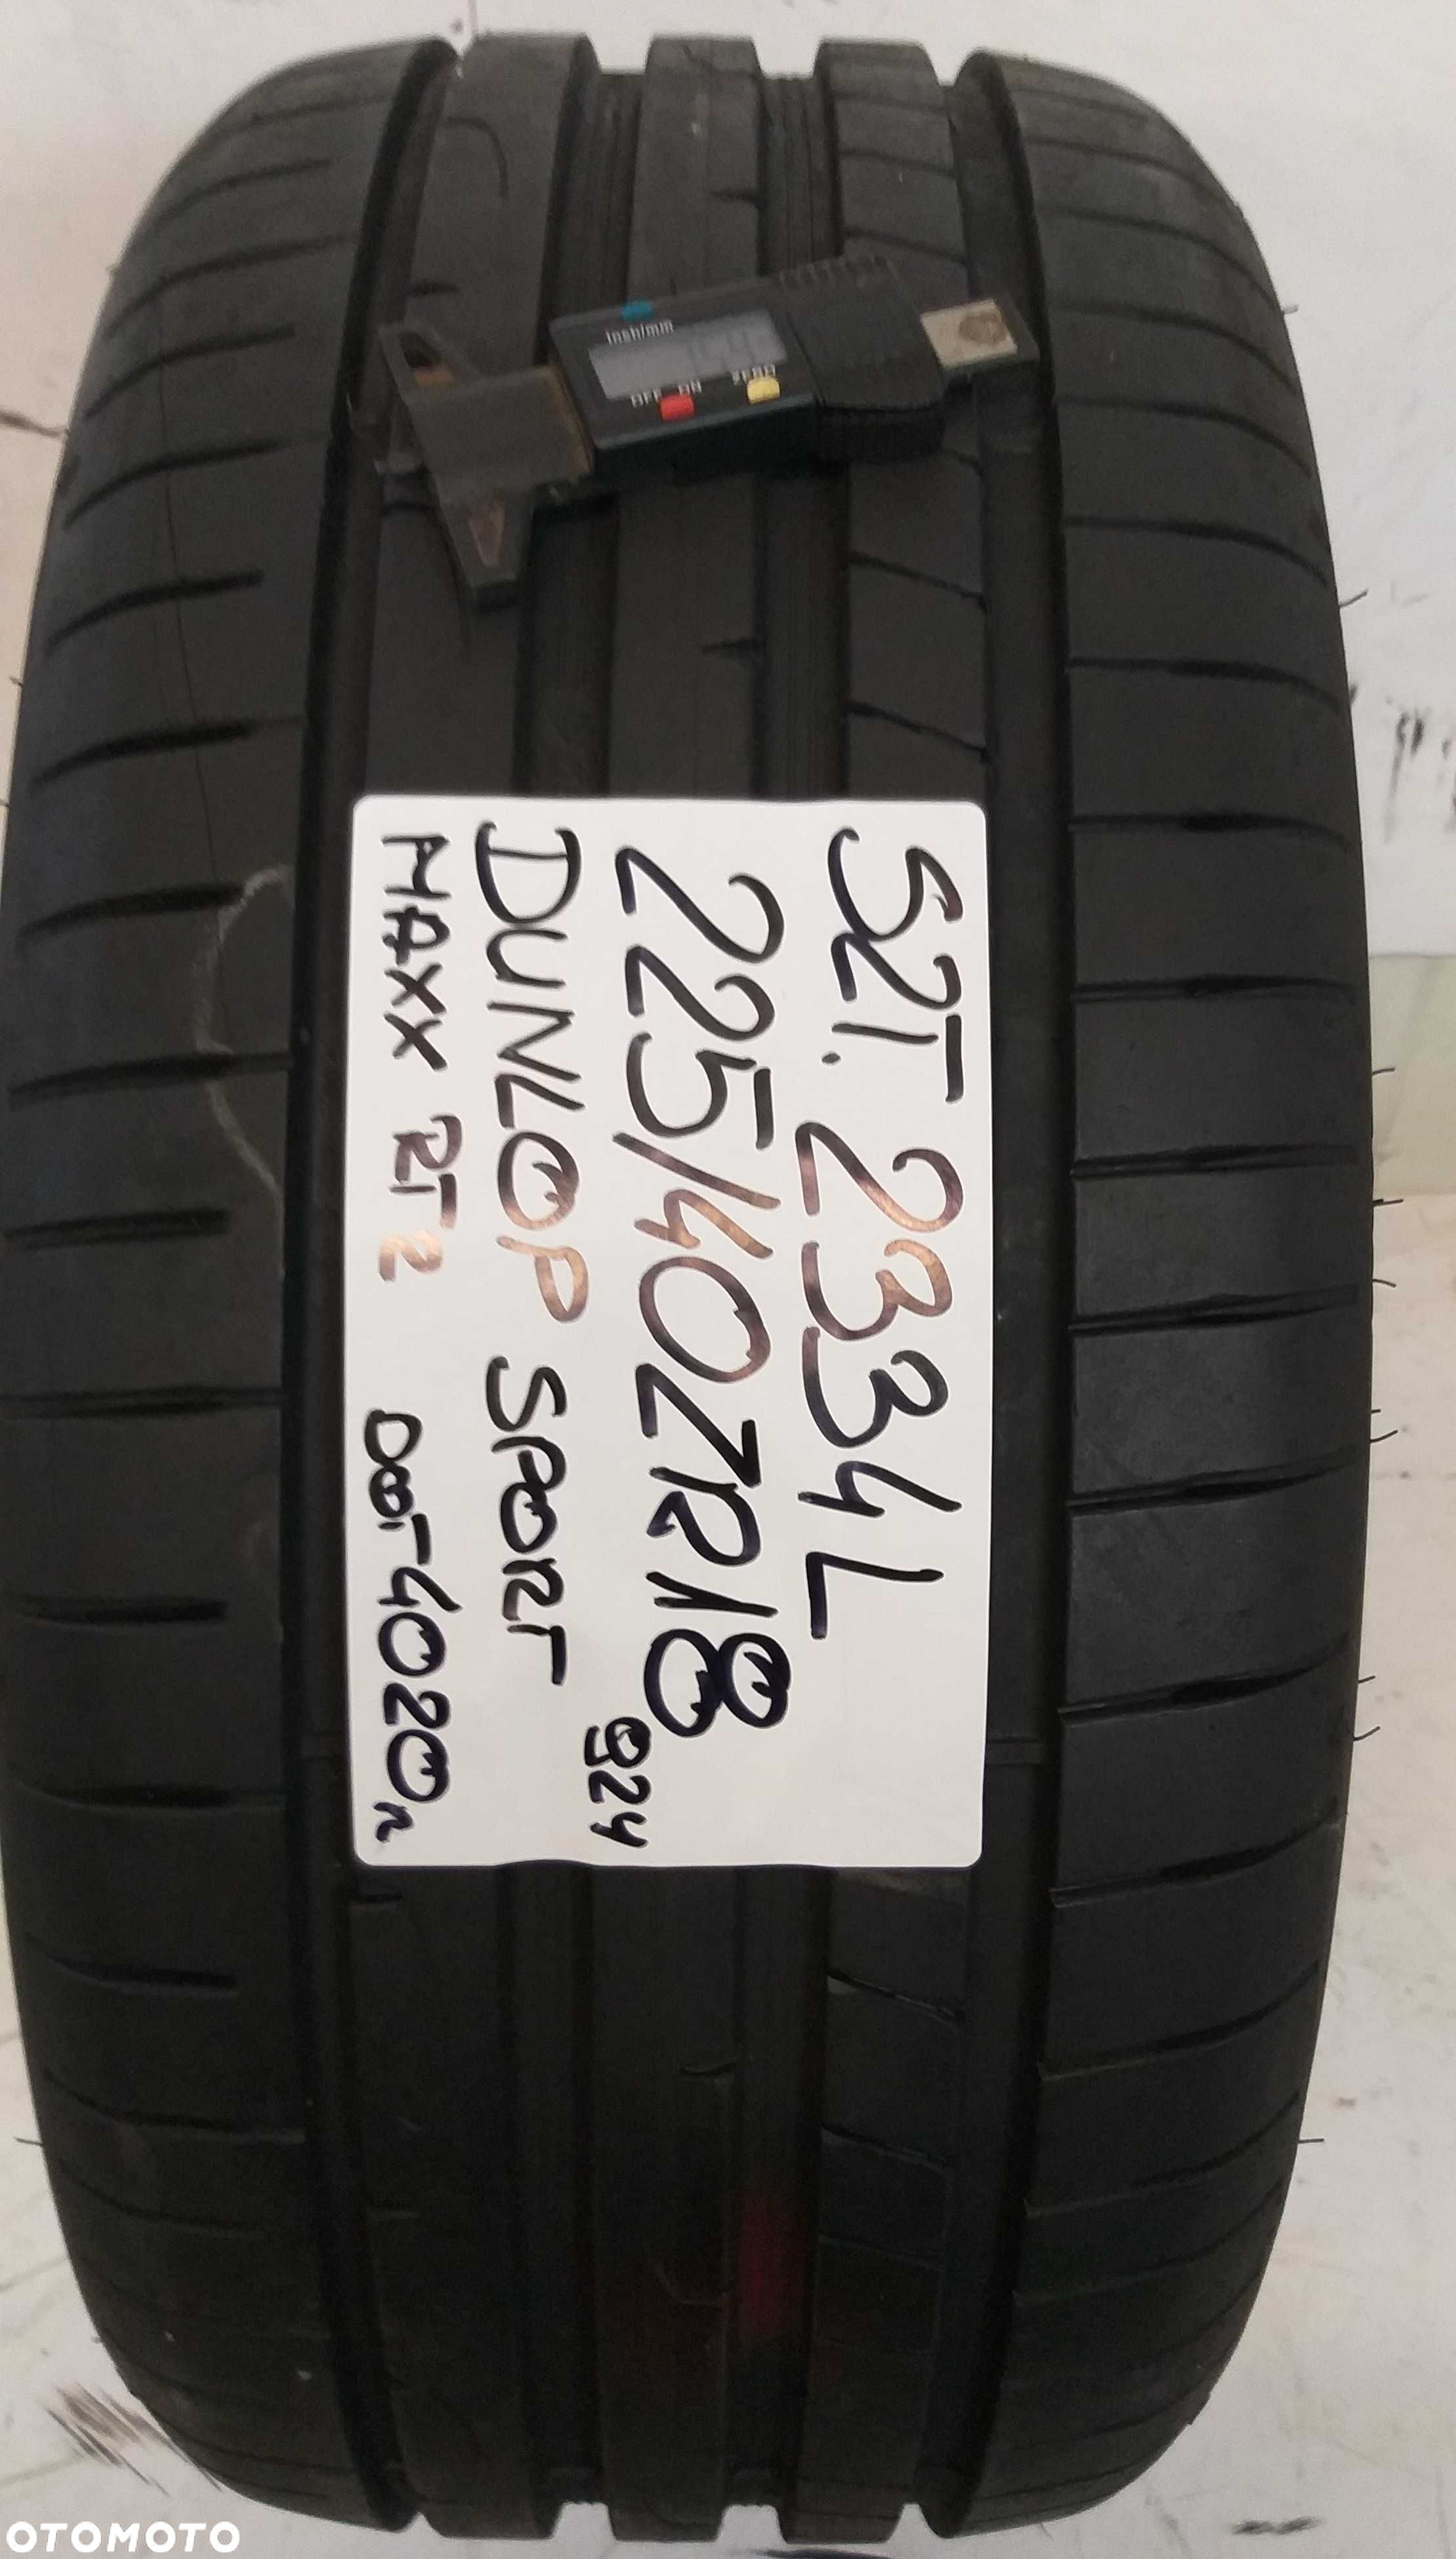 Insh/mm
OFF ON ZERO
SZT. 2334L
225/40ZR18 92Y
DUNLOP SPORT
MAXX RT2 DOT-4020R
OTOMOTO